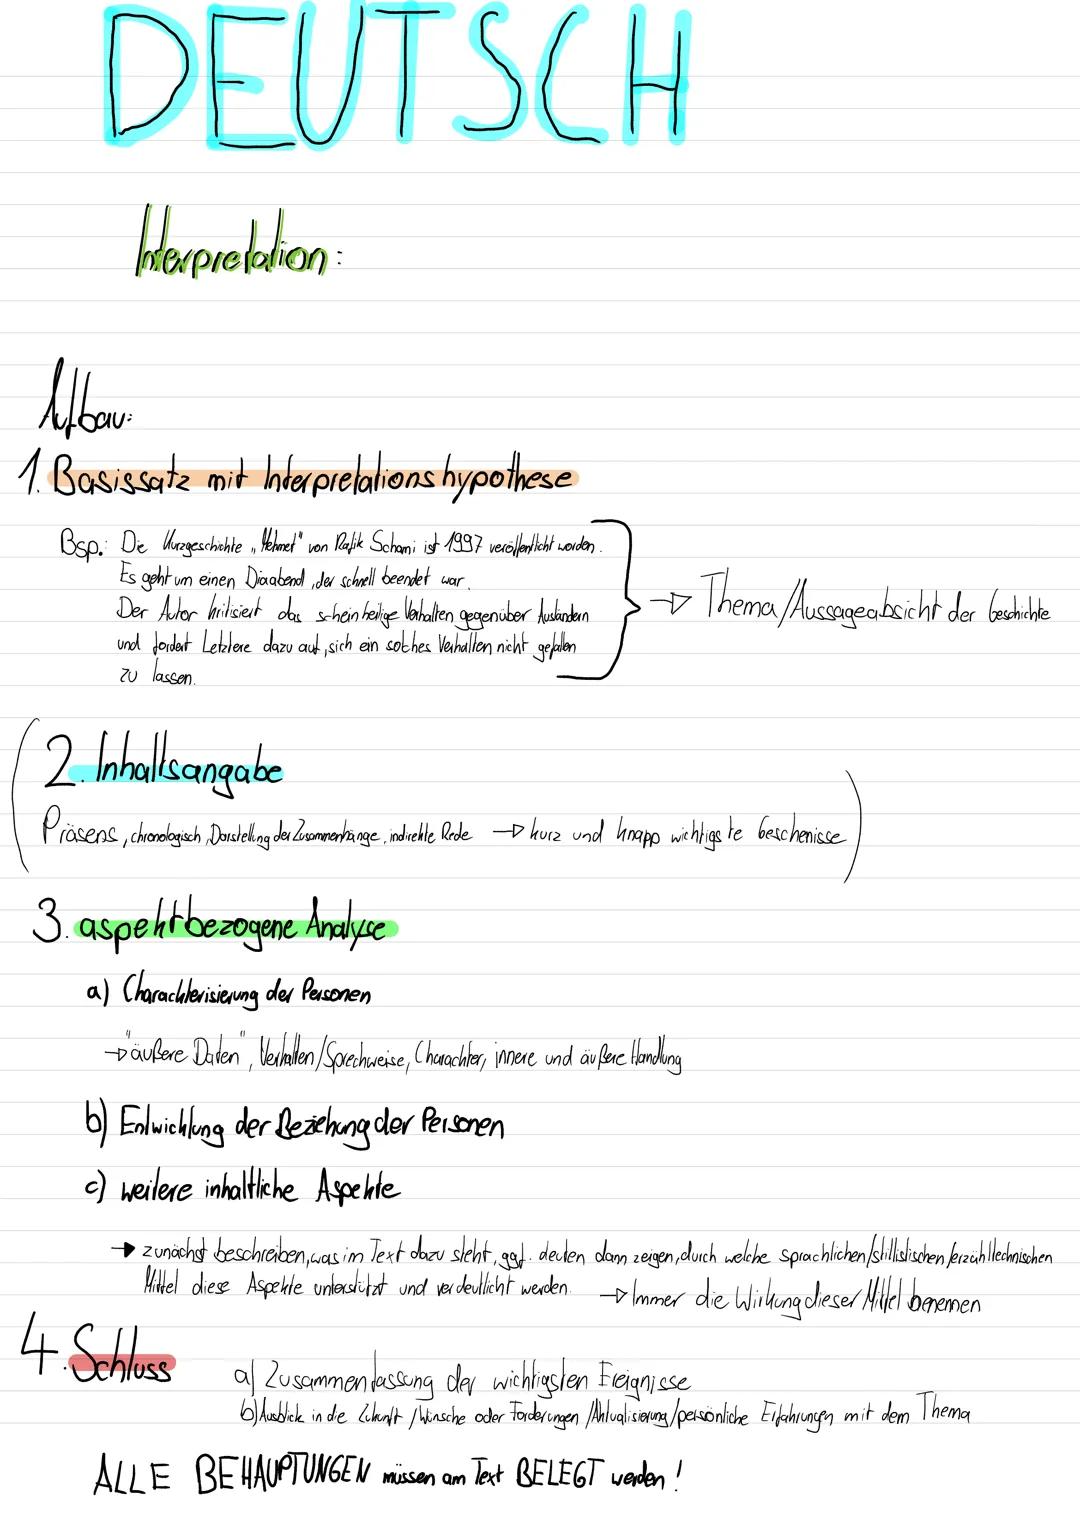 DEUTSCH
Interpretation:
Aufbau:
1. Basissatz mit Interpretationshypothese
Bsp.: Die Kurzgeschichte „Mehmet" von Rafik Schami ist 1997 veröffentlicht worden.
Es geht um einen Diaabend, der schnell beendet war.
Der Autor kritisiert das scheinheilige Verhalten gegenüber Ausländern
und fordert Letztere dazu auf, sich ein solches Verhalten nicht gefallen
zu lassen.
→ Thema/Aussageabsicht der Geschichte
(2. Inhaltsangabe
Präsens, chronologisch, Darstellung der Zusammenhänge, indirekte Rede → kurz und knapp wichtigste Geschenisse)
3. aspektbezogene Analyse
a) Charackterisierung der Personen
→ "äußere Daten", Verhalten/Sprechweise, Charackter, innere und äußere Handlung
b) Entwicklung der Beziehung der Personen
c) weitere inhaltliche Aspekte
→ zunächst beschreiben, was im Text dazu steht, ggf. deuten dann zeigen, durch welche sprachlichen/stillistischen/erzähltechnischen
Mittel diese Aspekte unterstützt und verdeutlicht werden. → Immer die Wirkung dieser Mittel benennen
4. Schluss
a) Zusammenfassung der wichtigsten Ereignisse
b) Ausblick in die Zukunft /Wünsche oder Forderungen /Aktualisierung/persönliche Erfahrungen mit dem Thema
ALLE BEHAUPTUNGEN müssen am Text BELEGT werden!